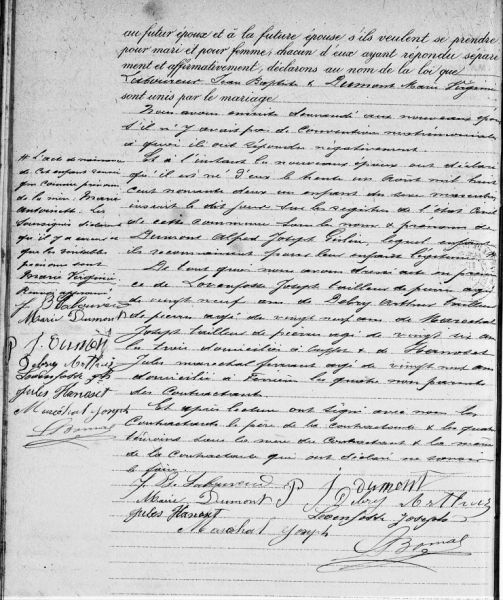 au futur époux et à la future épouse s'ils veulent se prendre
pour mari et pour femme, chacun d'eux ayant répondu séparé
ment et affirmativement, déclarons au nom de la loi que
Jean Baptiste & Dumont Marie Virginie
sont unis par le mariage
Nous avons ensuite demandé aux nouveaux époux
s'il n'y avait pas de Convention matrimoniale
à quoi ils ont répondu négativement.
Et à l'instant les nouveaux époux ont déclaré
qu'il est né d'eux le trente un Août mil huit
cent nonante deux un enfant du sexe masculin,
inscrit le dit jour sur les registres de l'état Civil
de cette commune sous le nom & prénoms de
Dumont Alfred Joseph lequel enfant
ils reconnaissent pour leur enfant légitime
De tout quoi nous avons dressé acte en présen
ce de Joseph tailleur de pierres agé
de vingt neuf ans de Debry Arthur tailleur
de pierres agé de vingt neuf ans de Marechal
Joseph tailleur de pierres agé de vingt six ans
les trois domiciliés à & de Hanoset
Jules marechal ferrant agé de vingt huit ans
domicilié à les quatre non parents
des Contractants.
Et après lecture ont signé avec nous les
Contractants le père de la Contractante & les quatre
témoins sauf la mère du Contractant & la mère
de la Contractante qui ont déclaré ne savoir
le faire
J. B.
Marie Dumont P J Dumont
Debry Arthur
Jules Hanoset Joseph
Marechal Joseph
L'acte de naissance
de cet enfant renseigne
comme prénom
de la mère: Marie
Antoinette. Les
Soussignés déclarent
qu'il y a erreur et
que les véritables
prénoms sont
Marie Virginie
J B
Marie Dumont
P J. Dumont
Debry Arthur
Jules Hanoset
Marechal Joseph